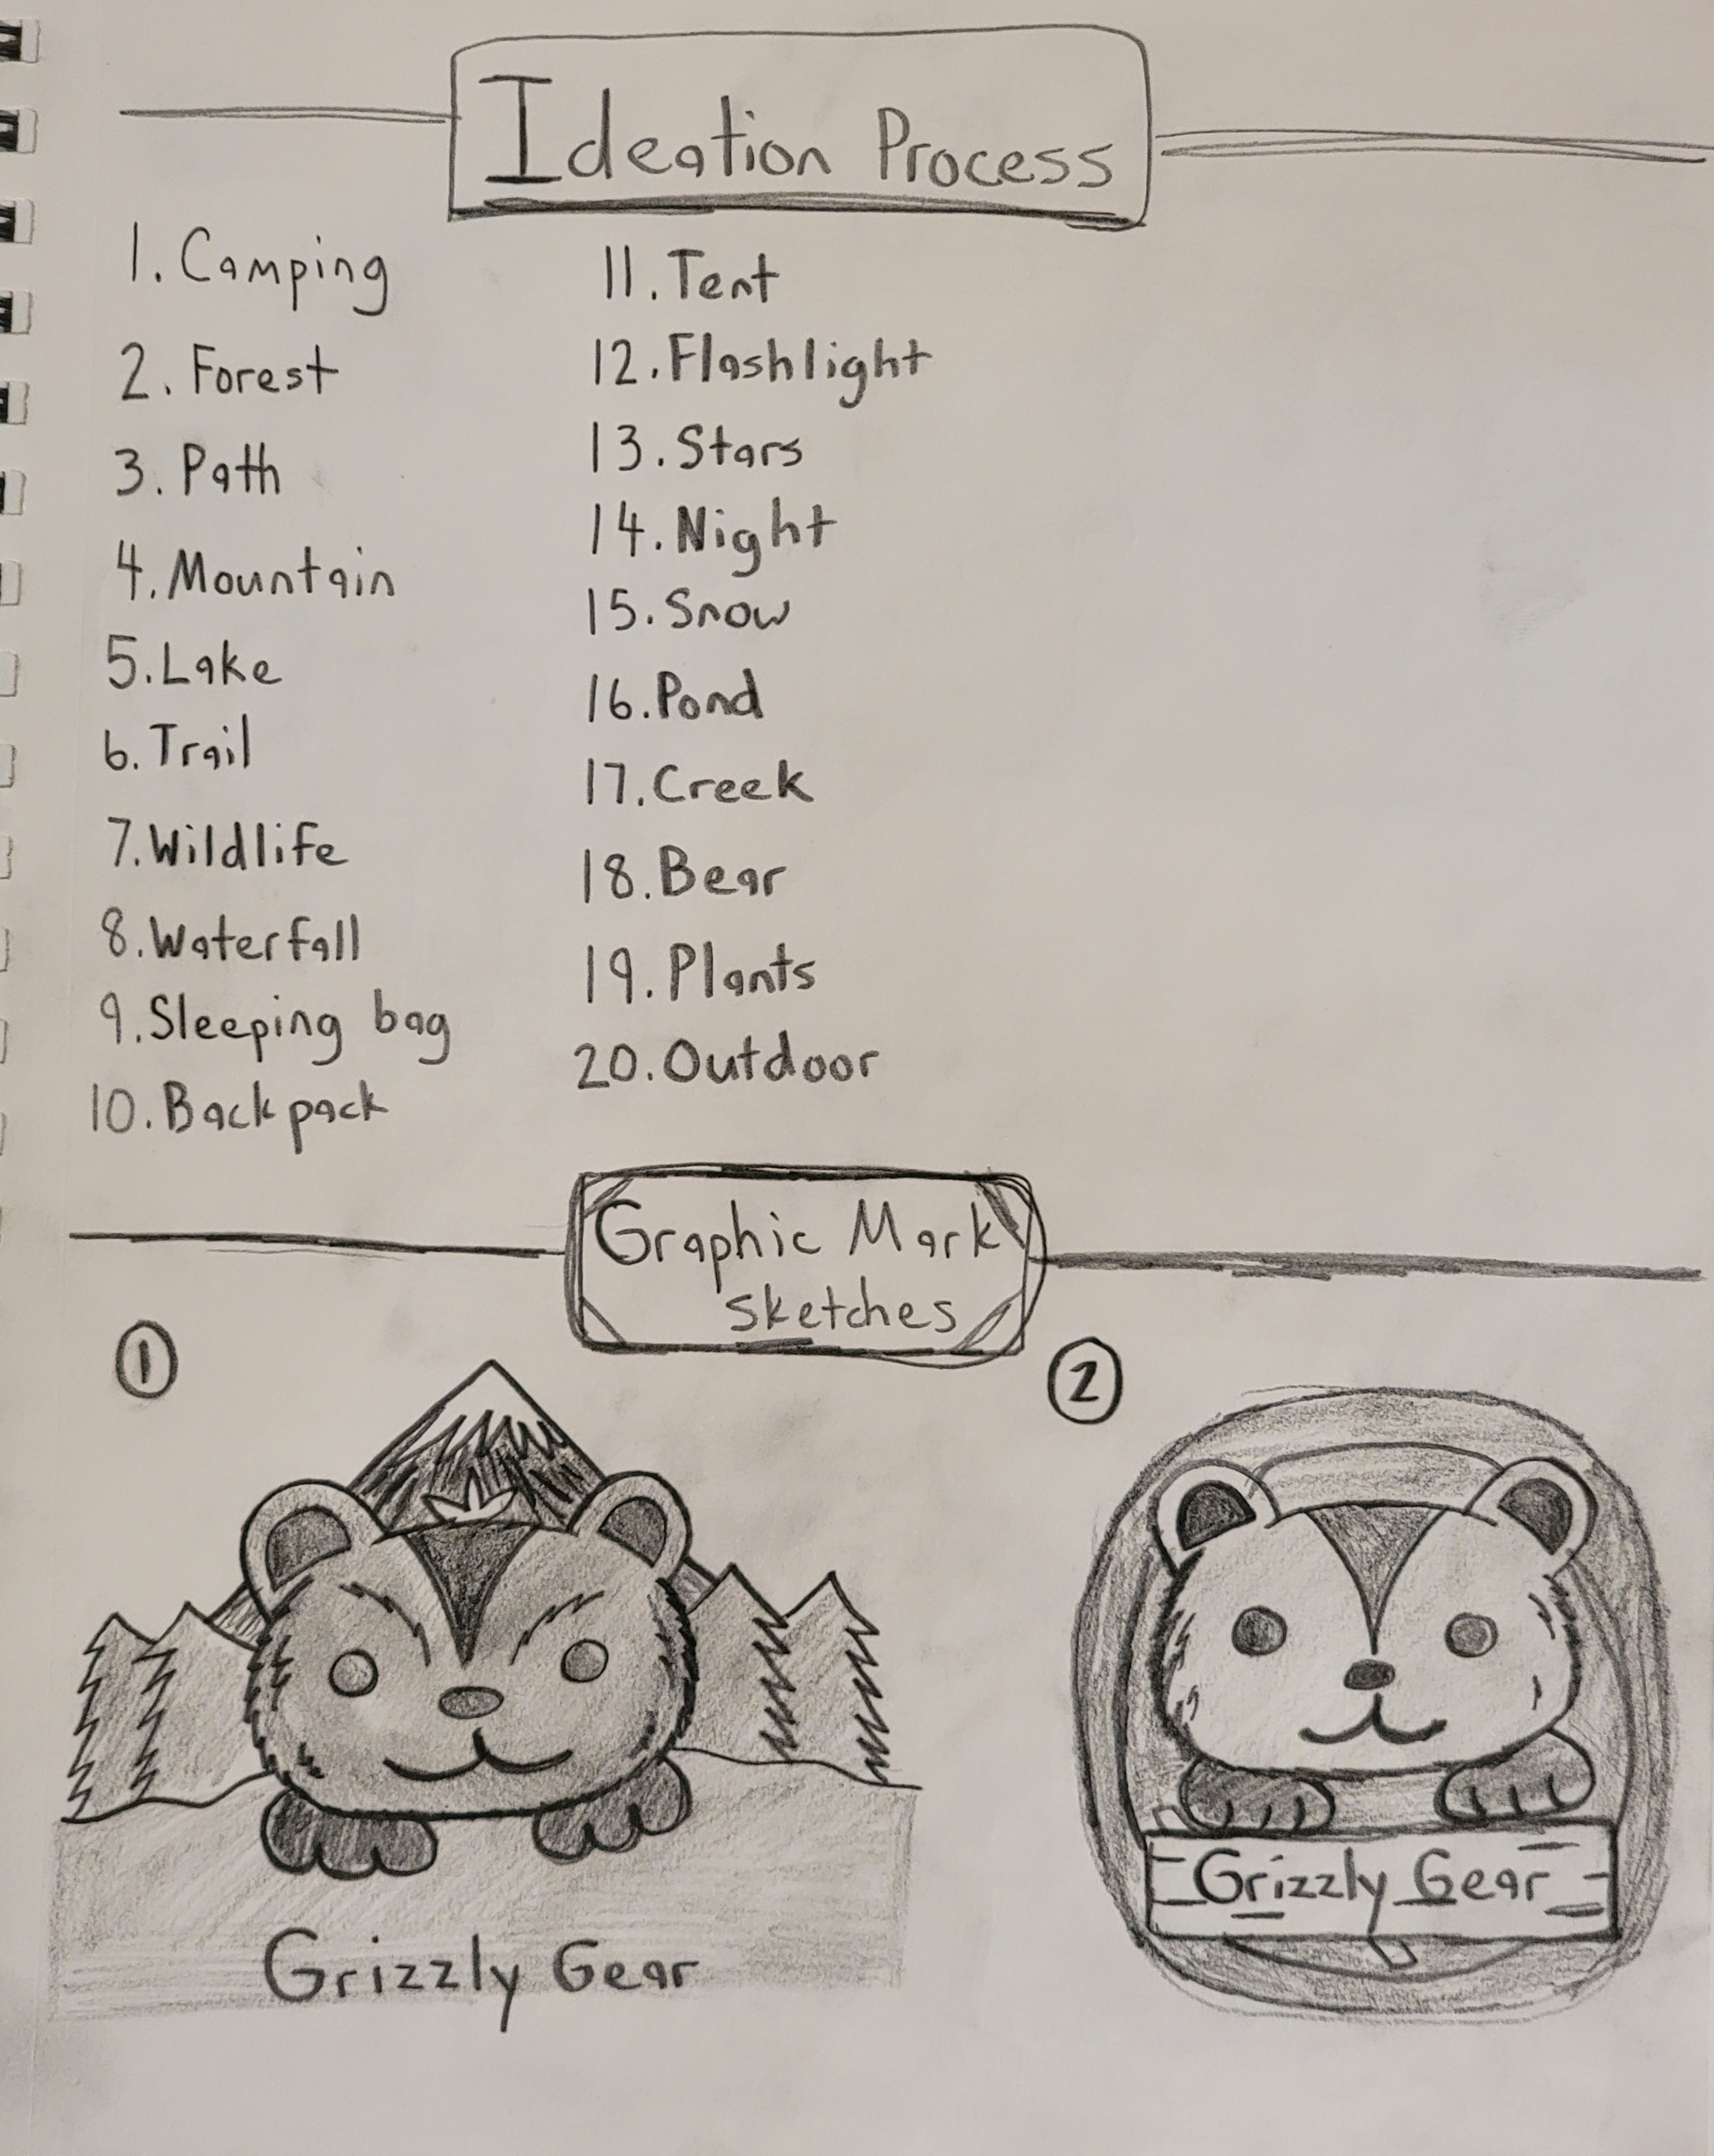 Ideation Process
1. Camping
2. Forest
3. Path
4. Mountain
5. Lake
6. Trail
7. Wildlife
8. Waterfall
9. Sleeping bag
10. Backpack
11. Tent
12. Flashlight
13. Stars
14. Night
15. Snow
16. Pond
17. Creek
18. Bear
19. Plants
20. Outdoor
Graphic Mark
sketches
1
Grizzly Gear
2
Grizzly Gear